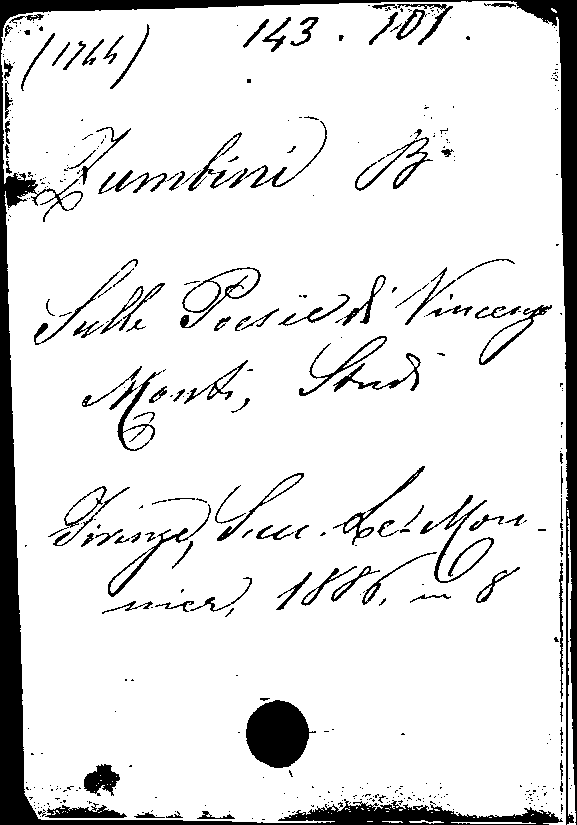 (1744) 143. 101.
Zumbini B
Sulle Poesie di Vincenzo
Monti, Studi
Firenze, Succ. Le Mon-
nier, 1886, in 8